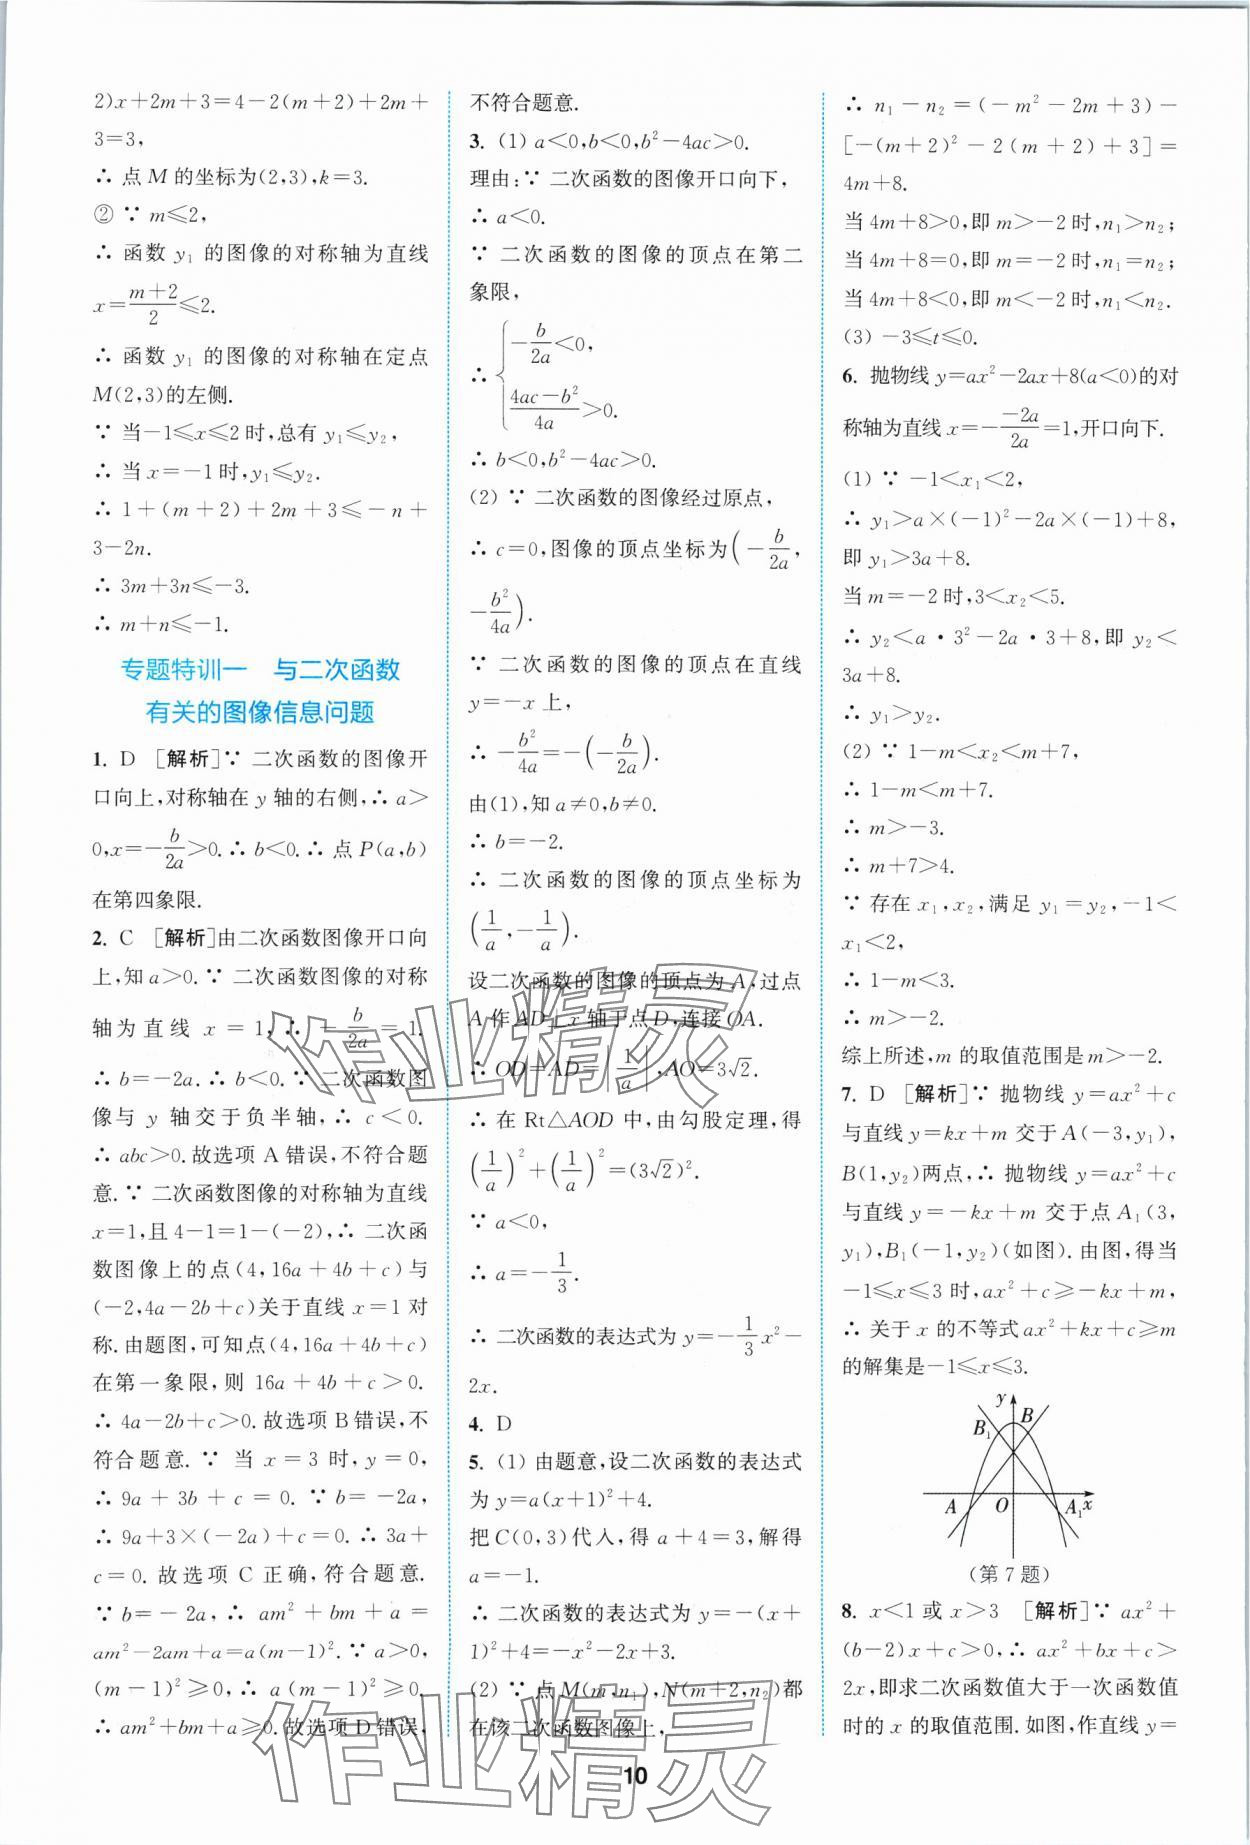 2)x+2m+3=4-2(m+2)+2m+
3=3,
∴ 点 M 的坐标为(2,3),k=3.
② ∵ m≤2,
∴ 函数 y₁ 的图像的对称轴为直线
x=\frac{m+2}{2}≤2.
∴ 函数 y₁ 的图像的对称轴在定点
M(2,3)的左侧.
∵ 当-1≤x≤2 时,总有 y₁≤y₂,
∴ 当 x=-1 时,y₁≤y₂.
∴ 1+(m+2)+2m+3≤-n+
3-2n.
∴ 3m+3n≤-3.
∴ m+n≤-1.
专题特训一 与二次函数
有关的图像信息问题
1. D [解析]∵ 二次函数的图像开
口向上,对称轴在 y 轴的右侧,∴ a>
0,x=-\frac{b}{2a}>0.∴ b<0.∴ 点 P(a,b)
在第四象限.
2. C [解析]由二次函数图像开口向
上,知 a>0.∵ 二次函数图像的对称
轴为直线 x=1,∴ -\frac{b}{2a}=1.
∴ b=-2a.∴ b<0.∵ 二次函数图
像与 y 轴交于负半轴,∴ c<0.
∴ abc>0.故选项 A 错误,不符合题
意.∵ 二次函数图像的对称轴为直线
x=1,且 4-1=1-(-2),∴ 二次函
数图像上的点(4,16a+4b+c)与
(-2,4a-2b+c)关于直线 x=1 对
称.由题图,可知点(4,16a+4b+c)
在第一象限,则 16a+4b+c>0.
∴ 4a-2b+c>0.故选项 B 错误,不
符合题意.∵ 当 x=3 时,y=0,
∴ 9a+3b+c=0.∵ b=-2a,
∴ 9a+3×(-2a)+c=0.∴ 3a+
c=0.故选项 C 正确,符合题意.
∵ b=-2a,∴ am²+bm+a=
am²-2am+a=a(m-1)².∵ a>0,
(m-1)²≥0,∴ a(m-1)²≥0.
∴ am²+bm+a≥0.故选项 D 错误,
不符合题意.
3. (1) a<0,b<0,b²-4ac>0.
理由:∵ 二次函数的图像开口向下,
∴ a<0.
∵ 二次函数的图像的顶点在第二
象限,
∴ { -\frac{b}{2a}<0,
\frac{4ac-b²}{4a}>0.
∴ b<0,b²-4ac>0.
(2) ∵ 二次函数的图像经过原点,
∴ c=0,图像的顶点坐标为(-\frac{b}{2a},
-\frac{b²}{4a}).
∵ 二次函数的图像的顶点在直线
y=-x 上,
∴ -\frac{b²}{4a}=-(-\frac{b}{2a}).
由(1),知 a≠0,b≠0.
∴ b=-2.
∴ 二次函数的图像的顶点坐标为
(\frac{1}{a},-\frac{1}{a}).
设二次函数的图像的顶点为 A,过点
A 作 AD⊥x 轴于点 D,连接 OA.
∴ OD=AD=|\frac{1}{a}|,AO=3√2.
∴ 在 Rt△AOD 中,由勾股定理,得
(\frac{1}{a})²+(\frac{1}{a})²=(3√2)².
∵ a<0,
∴ a=-\frac{1}{3}.
∴ 二次函数的表达式为 y=-\frac{1}{3}x²-
2x.
4. D
5. (1) 由题意,设二次函数的表达式
为 y=a(x+1)²+4.
把 C(0,3)代入,得 a+4=3,解得
a=-1.
∴ 二次函数的表达式为 y=-(x+
1)²+4=-x²-2x+3.
(2) ∵ 点 M(m,n₁),N(m+2,n₂)都
在该二次函数图像上,
∴ n₁-n₂=(-m²-2m+3)-
[-(m+2)²-2(m+2)+3]=
4m+8.
当 4m+8>0,即 m>-2 时,n₁>n₂;
当 4m+8=0,即 m=-2 时,n₁=n₂;
当 4m+8<0,即 m<-2 时,n₁<n₂.
(3) -3≤t≤0.
6. 抛物线 y=ax²-2ax+8(a<0)的对
称轴为直线 x=-\frac{-2a}{2a}=1,开口向下.
(1) ∵ -1<x₁<2,
∴ y₁>a×(-1)²-2a×(-1)+8,
即 y₁>3a+8.
当 m=-2 时,3<x₂<5.
∴ y₂<a·3²-2a·3+8,即 y₂<
3a+8.
∴ y₁>y₂.
(2) ∵ 1-m<x₂<m+7,
∴ 1-m<m+7.
∴ m>-3.
∴ m+7>4.
∵ 存在 x₁,x₂,满足 y₁=y₂,-1<
x₁<2,
∴ 1-m<3.
∴ m>-2.
综上所述,m 的取值范围是 m>-2.
7. D [解析]∵ 抛物线 y=ax²+c
与直线 y=kx+m 交于 A(-3,y₁),
B(1,y₂)两点,∴ 抛物线 y=ax²+c
与直线 y=-kx+m 交于点 A₁(3,
y₁),B₁(-1,y₂)(如图).由图,得当
-1≤x≤3 时,ax²+c≥-kx+m,
∴ 关于 x 的不等式 ax²+kx+c≥m
的解集是-1≤x≤3.
y
B₁ B
A O A₁ x
(第 7 题)
8. x<1 或 x>3 [解析]∵ ax²+
(b-2)x+c>0,∴ ax²+bx+c>
2x,即求二次函数值大于一次函数值
时的 x 的取值范围.如图,作直线 y=
10
作业精灵
作业精灵